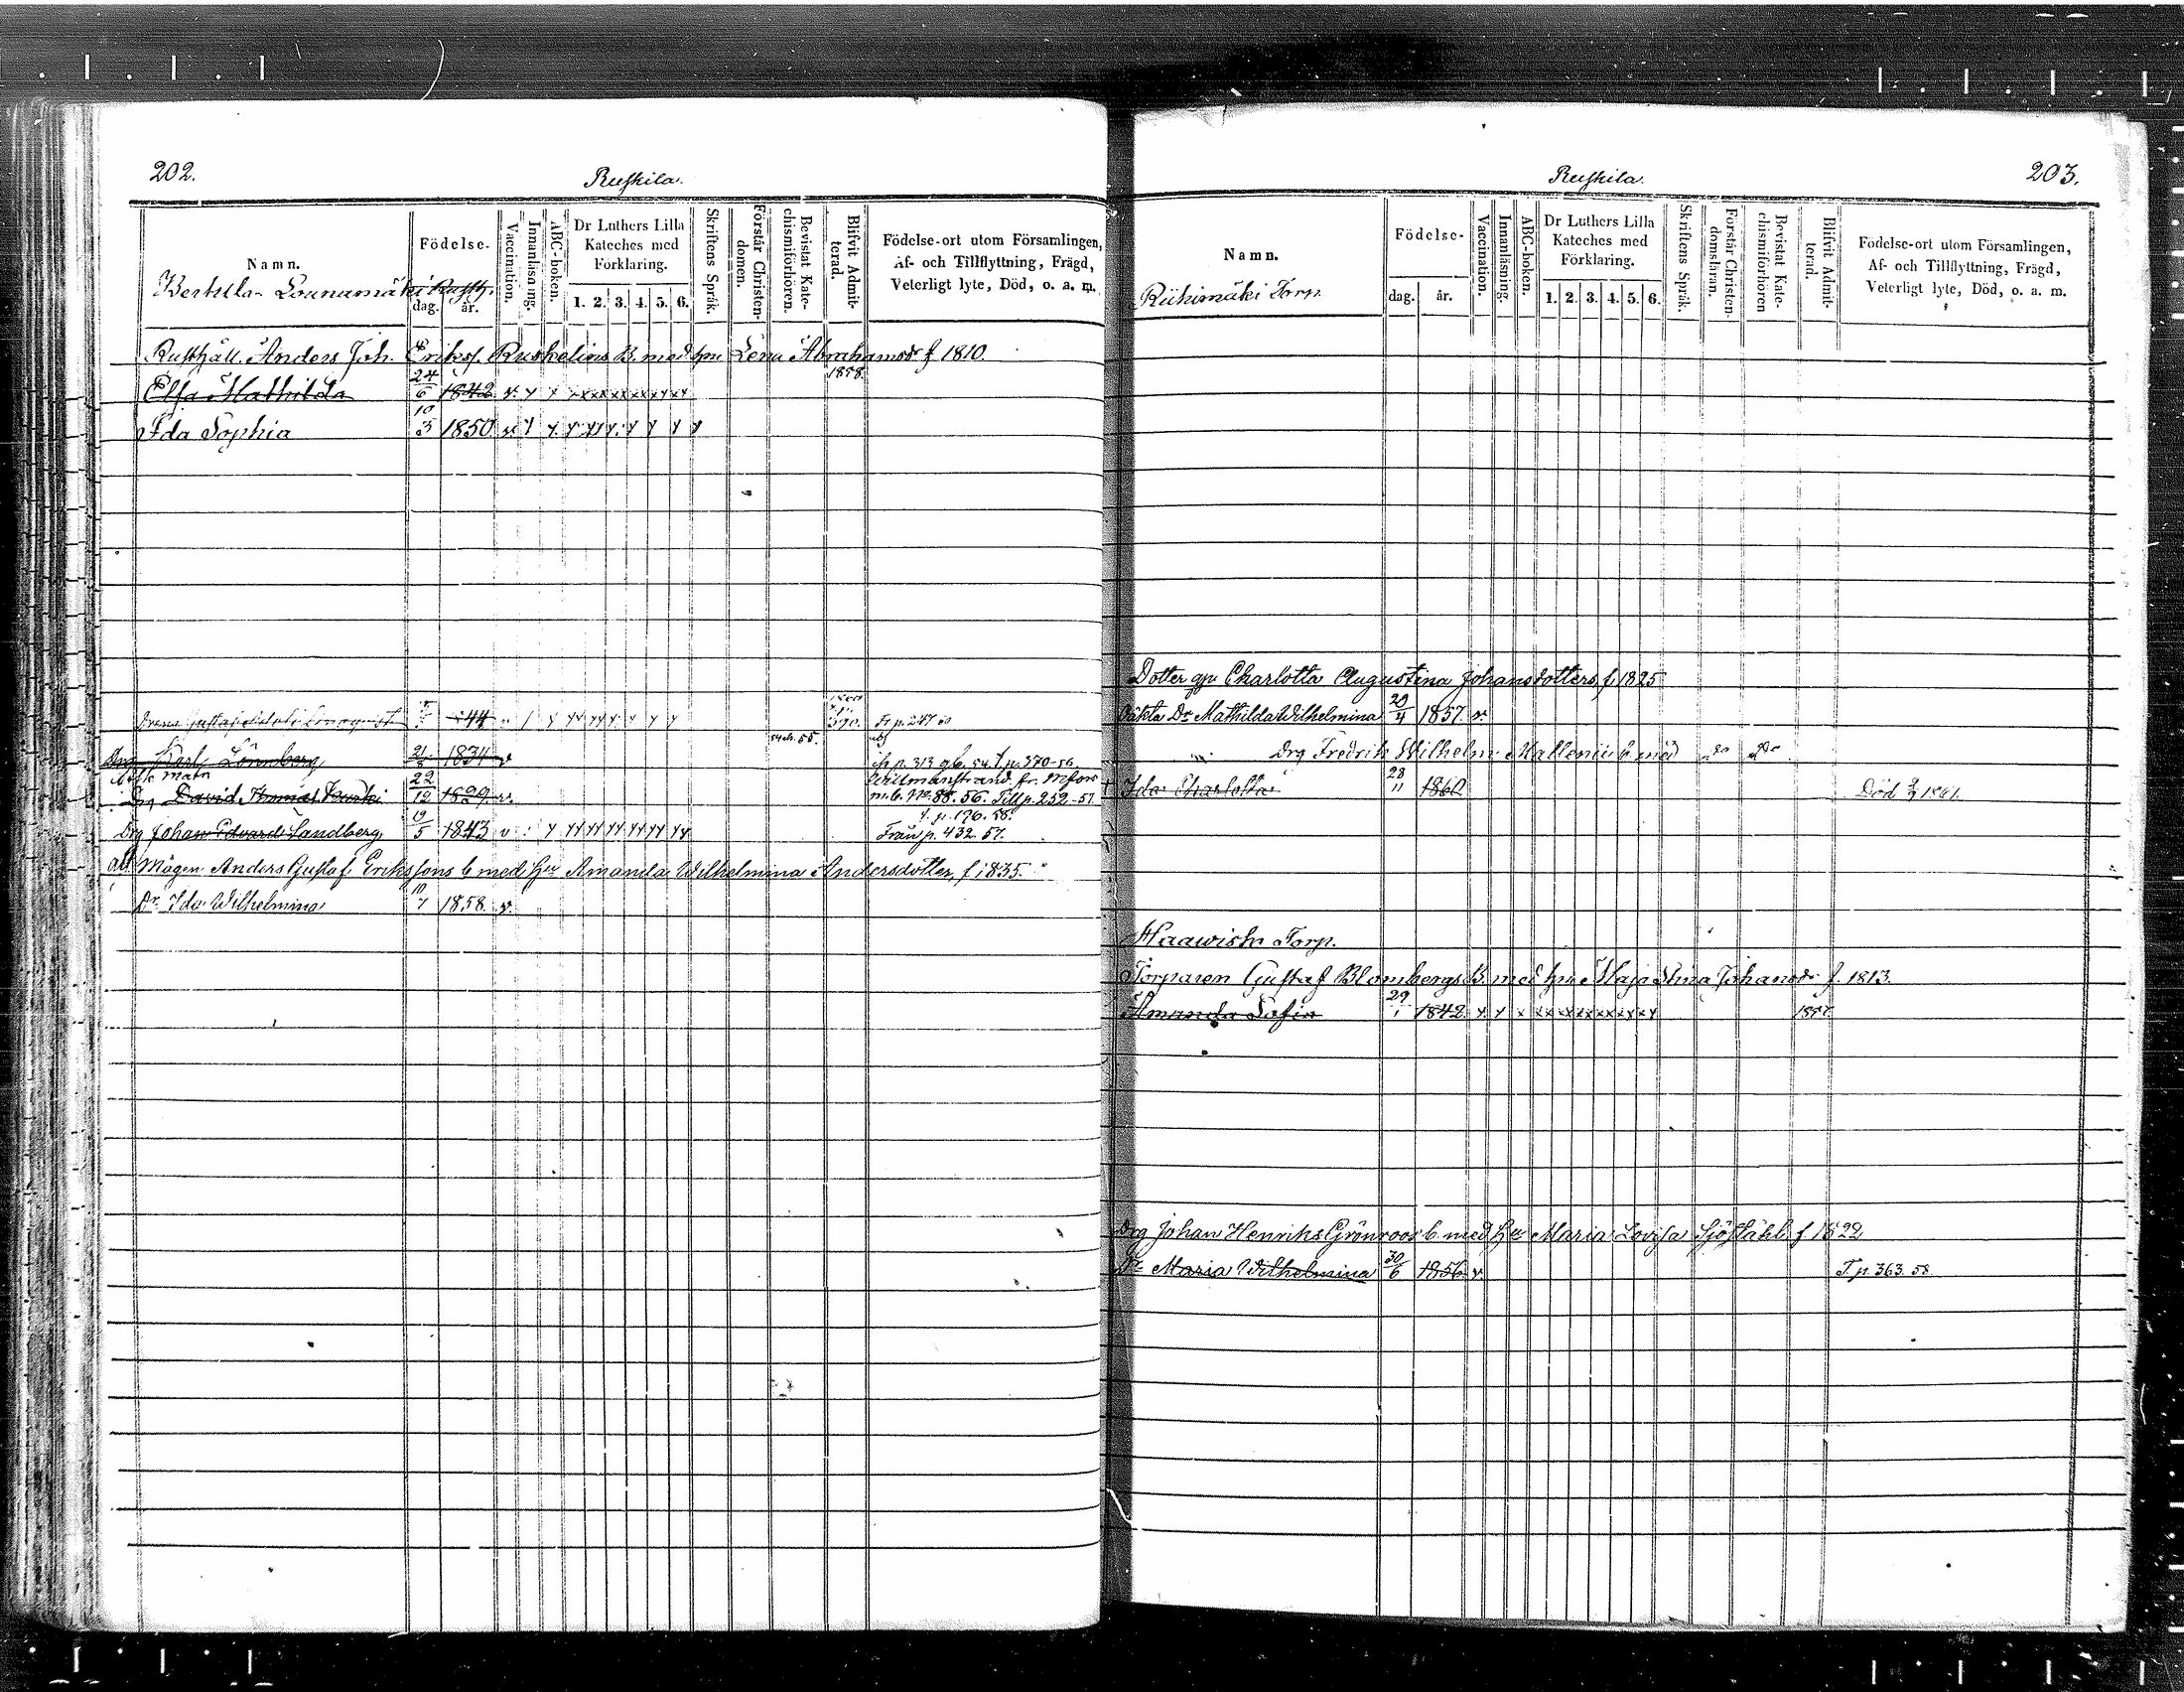 202.
Ruskila.
Namn.
Födelse-
dag.
år.
Vaccination.
Innanläsning.
ABC-boken.
Dr Luthers Lilla Kateches med Förklaring.
1. 2. 3. 4. 5. 6.
Skriftens Språk.
Förstår Christendomen.
Bevistat Katechismiförhören.
Blifvit Admitterad.
Födelse-ort utom Församlingen,
Af- och Tillflyttning, Frägd,
Veterligt lyte, Död, o. a. m.
Bertula-Lounamäki Rusth.
Rusthåll. Anders Joh. Eriks. Ruskelins B. med hu Lena Abrahamsdr f 1810.
Elsa Mathilda 24/6 1842 v. 1858.
Ida Sophia 10/3 1850 v.
Dreng Gustaf 44 Fr p. 247 60
Drg Karl Lönnberg 21 1834 v p. 313 54. t. p. 370-56.
22/12 1829 v. Willmanstrand. No 88. 56. Till p. 252-57.
Drg David
t. p. 176. 58.
Drg Johan Edvard Sandberg 19/5 1843 v Från p. 432. 57.
Mågen Anders Gustaf Erikssons b med hu Amanda Wilhelmina Andersdotter, f 1835.
Dr Ida Wilhelmina 10/7 1858. v.
203.
Ruskila.
Namn.
Födelse-
dag.
år.
Vaccination.
Innanläsning.
ABC-boken.
Dr Luthers Lilla Kateches med Förklaring.
1. 2. 3. 4. 5. 6.
Skriftens Språk.
Förstår Christendomsläran.
Bevistat Katechismiförhören
Blifvit Admitterad.
Födelse-ort utom Församlingen,
Af- och Tillflyttning, Frägd,
Veterligt lyte, Död, o. a. m.
Riihimäki Torp.
Dotter Charlotta Augustina Johansdotters, f. 1825
Oäkta Dr Mathilda Wilhelmina 20/4 1857. v.
Drg Fredrik Wilhelm Mallenii b med do do
† Ida Charlotta 28/11 1860 Död 1861.
Haawisto Torp.
Torparen Gustaf Blombergs B. med hu Maja Johansdr f. 1813.
Amanda Sofia 29/1 1842
Drg Johan Henriks Grönroos b med hu Maria Lovisa Sjöståhl f 1822
Dr Maria Wilhelmina 30/6 1856 v. T. p. 363. 58.